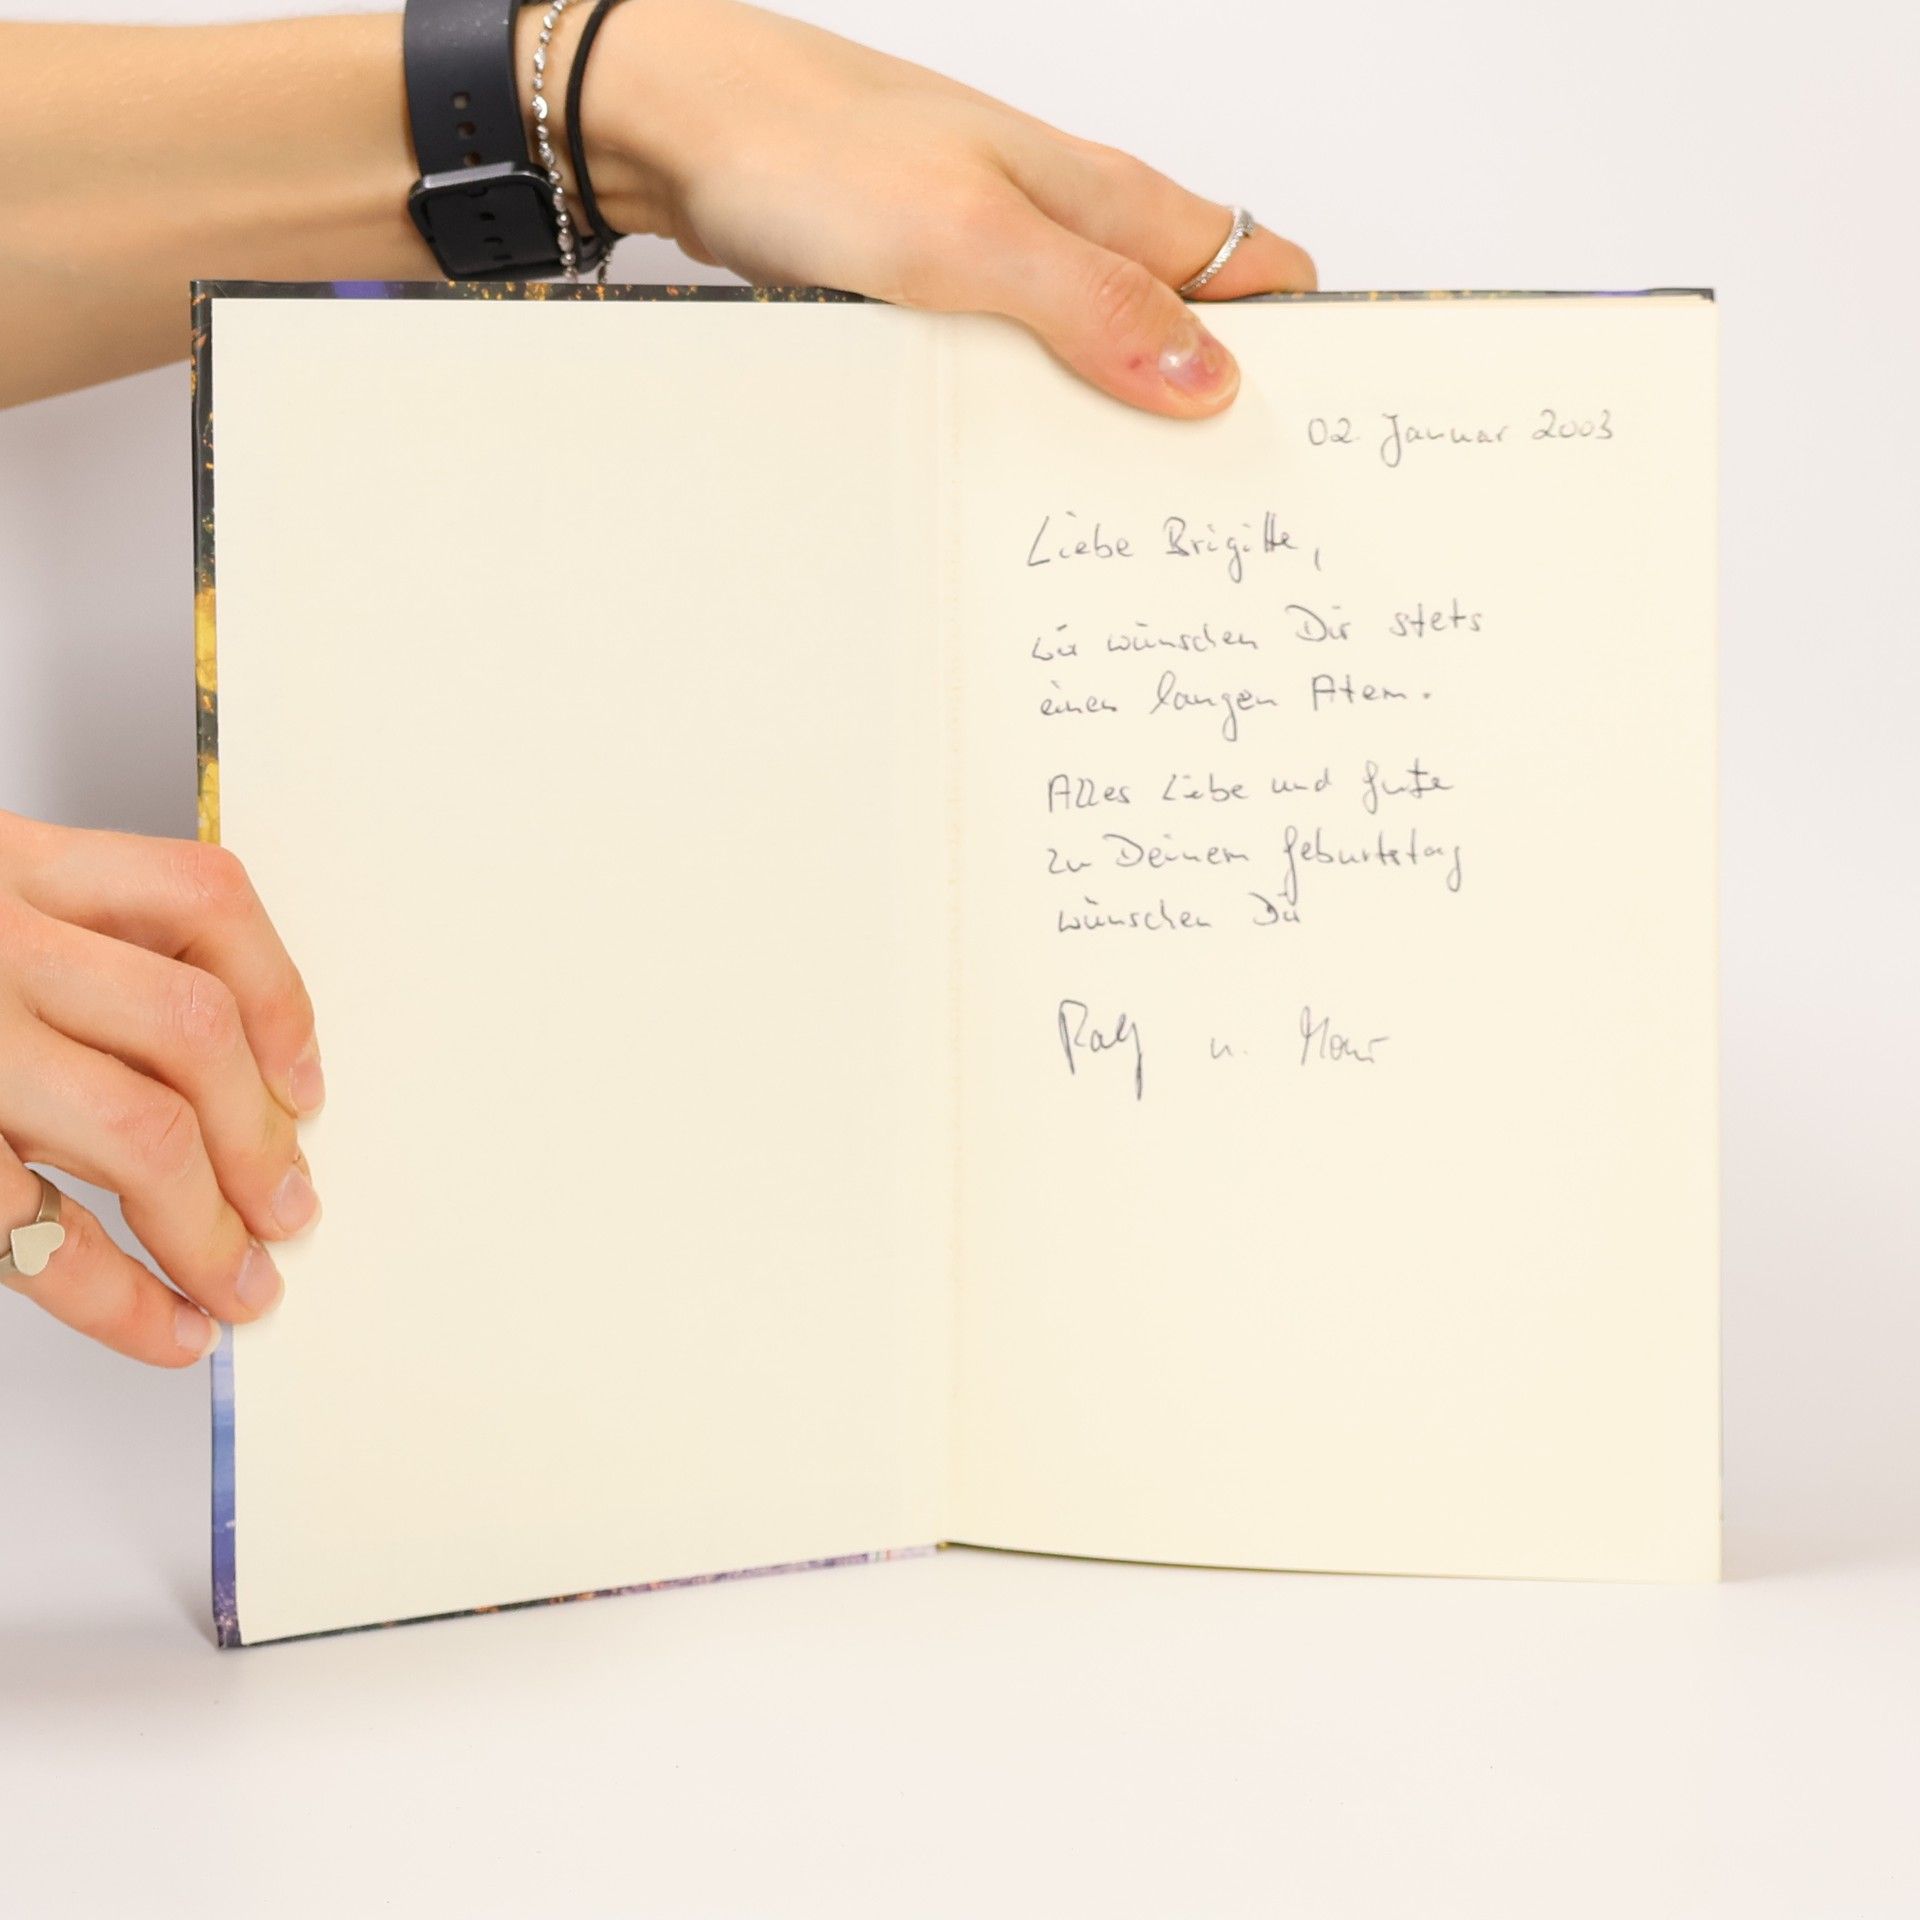 02. Januar 2003
Liebe Brigitte,
wir wünschen Dir stets
einen langen Atem.
Alles Liebe und Gute
zu Deinem Geburtstag
wünschen Dir
Ralf u.